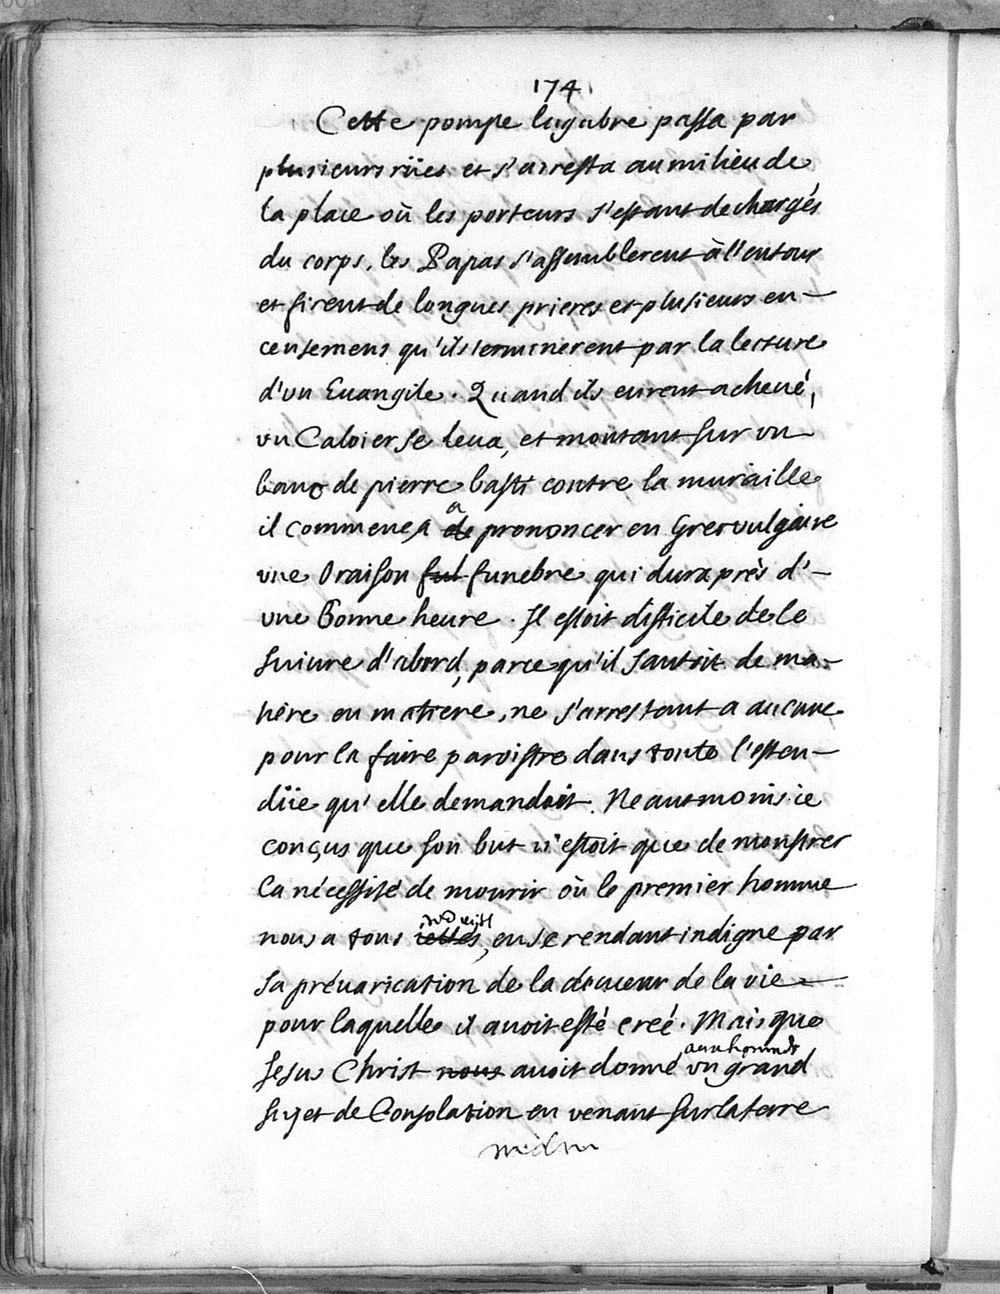 174
Cette pompe lugubre passa par
plusieurs rües et s'arresta au milieu de
la place où les porteurs s'estant dechargés
du corps, les Papas s'assemblerent à l'entour
et firent de longues prieres et plusieurs en-
censemens qu'ils terminerent par la lecture
d'vn Euangile. Quand ils eurent acheué,
vn Caloier se leua, et montant sur vn
banc de pierre basti contre la muraille
il commença de a prononcer en Grec vulgaire
vne Oraison ful funebre qui dura près d'-
vne Bonne heure. Il estoit difficile de le
suiure d'abord, parce qu'il sautoit de ma-
tiére en matiere, ne s'arrestant a aucune
pour la faire paroistre dans toute l'esten-
düe qu'elle demandoit. Neantmoins ie
conçus que son but n'estoit que de monstrer
la nécessité de mourir où le premier homme
nous a tous iettés, en se rendant indigne par
sa préuarication de la douceur de la vie
pour laquelle il auoit esté creé. Mais que
Jesus Christ nous auoit donné aux hommes vn grand
sujet de Consolation en venant sur la terre